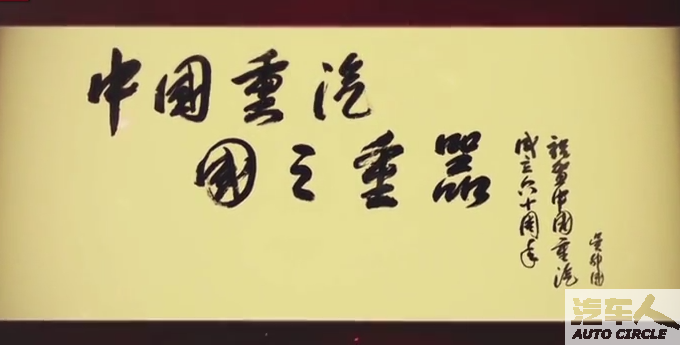 中國重汽
國之重器
祝贺中国重汽
成立六十周年
汽车人
AUTO CIRCLE